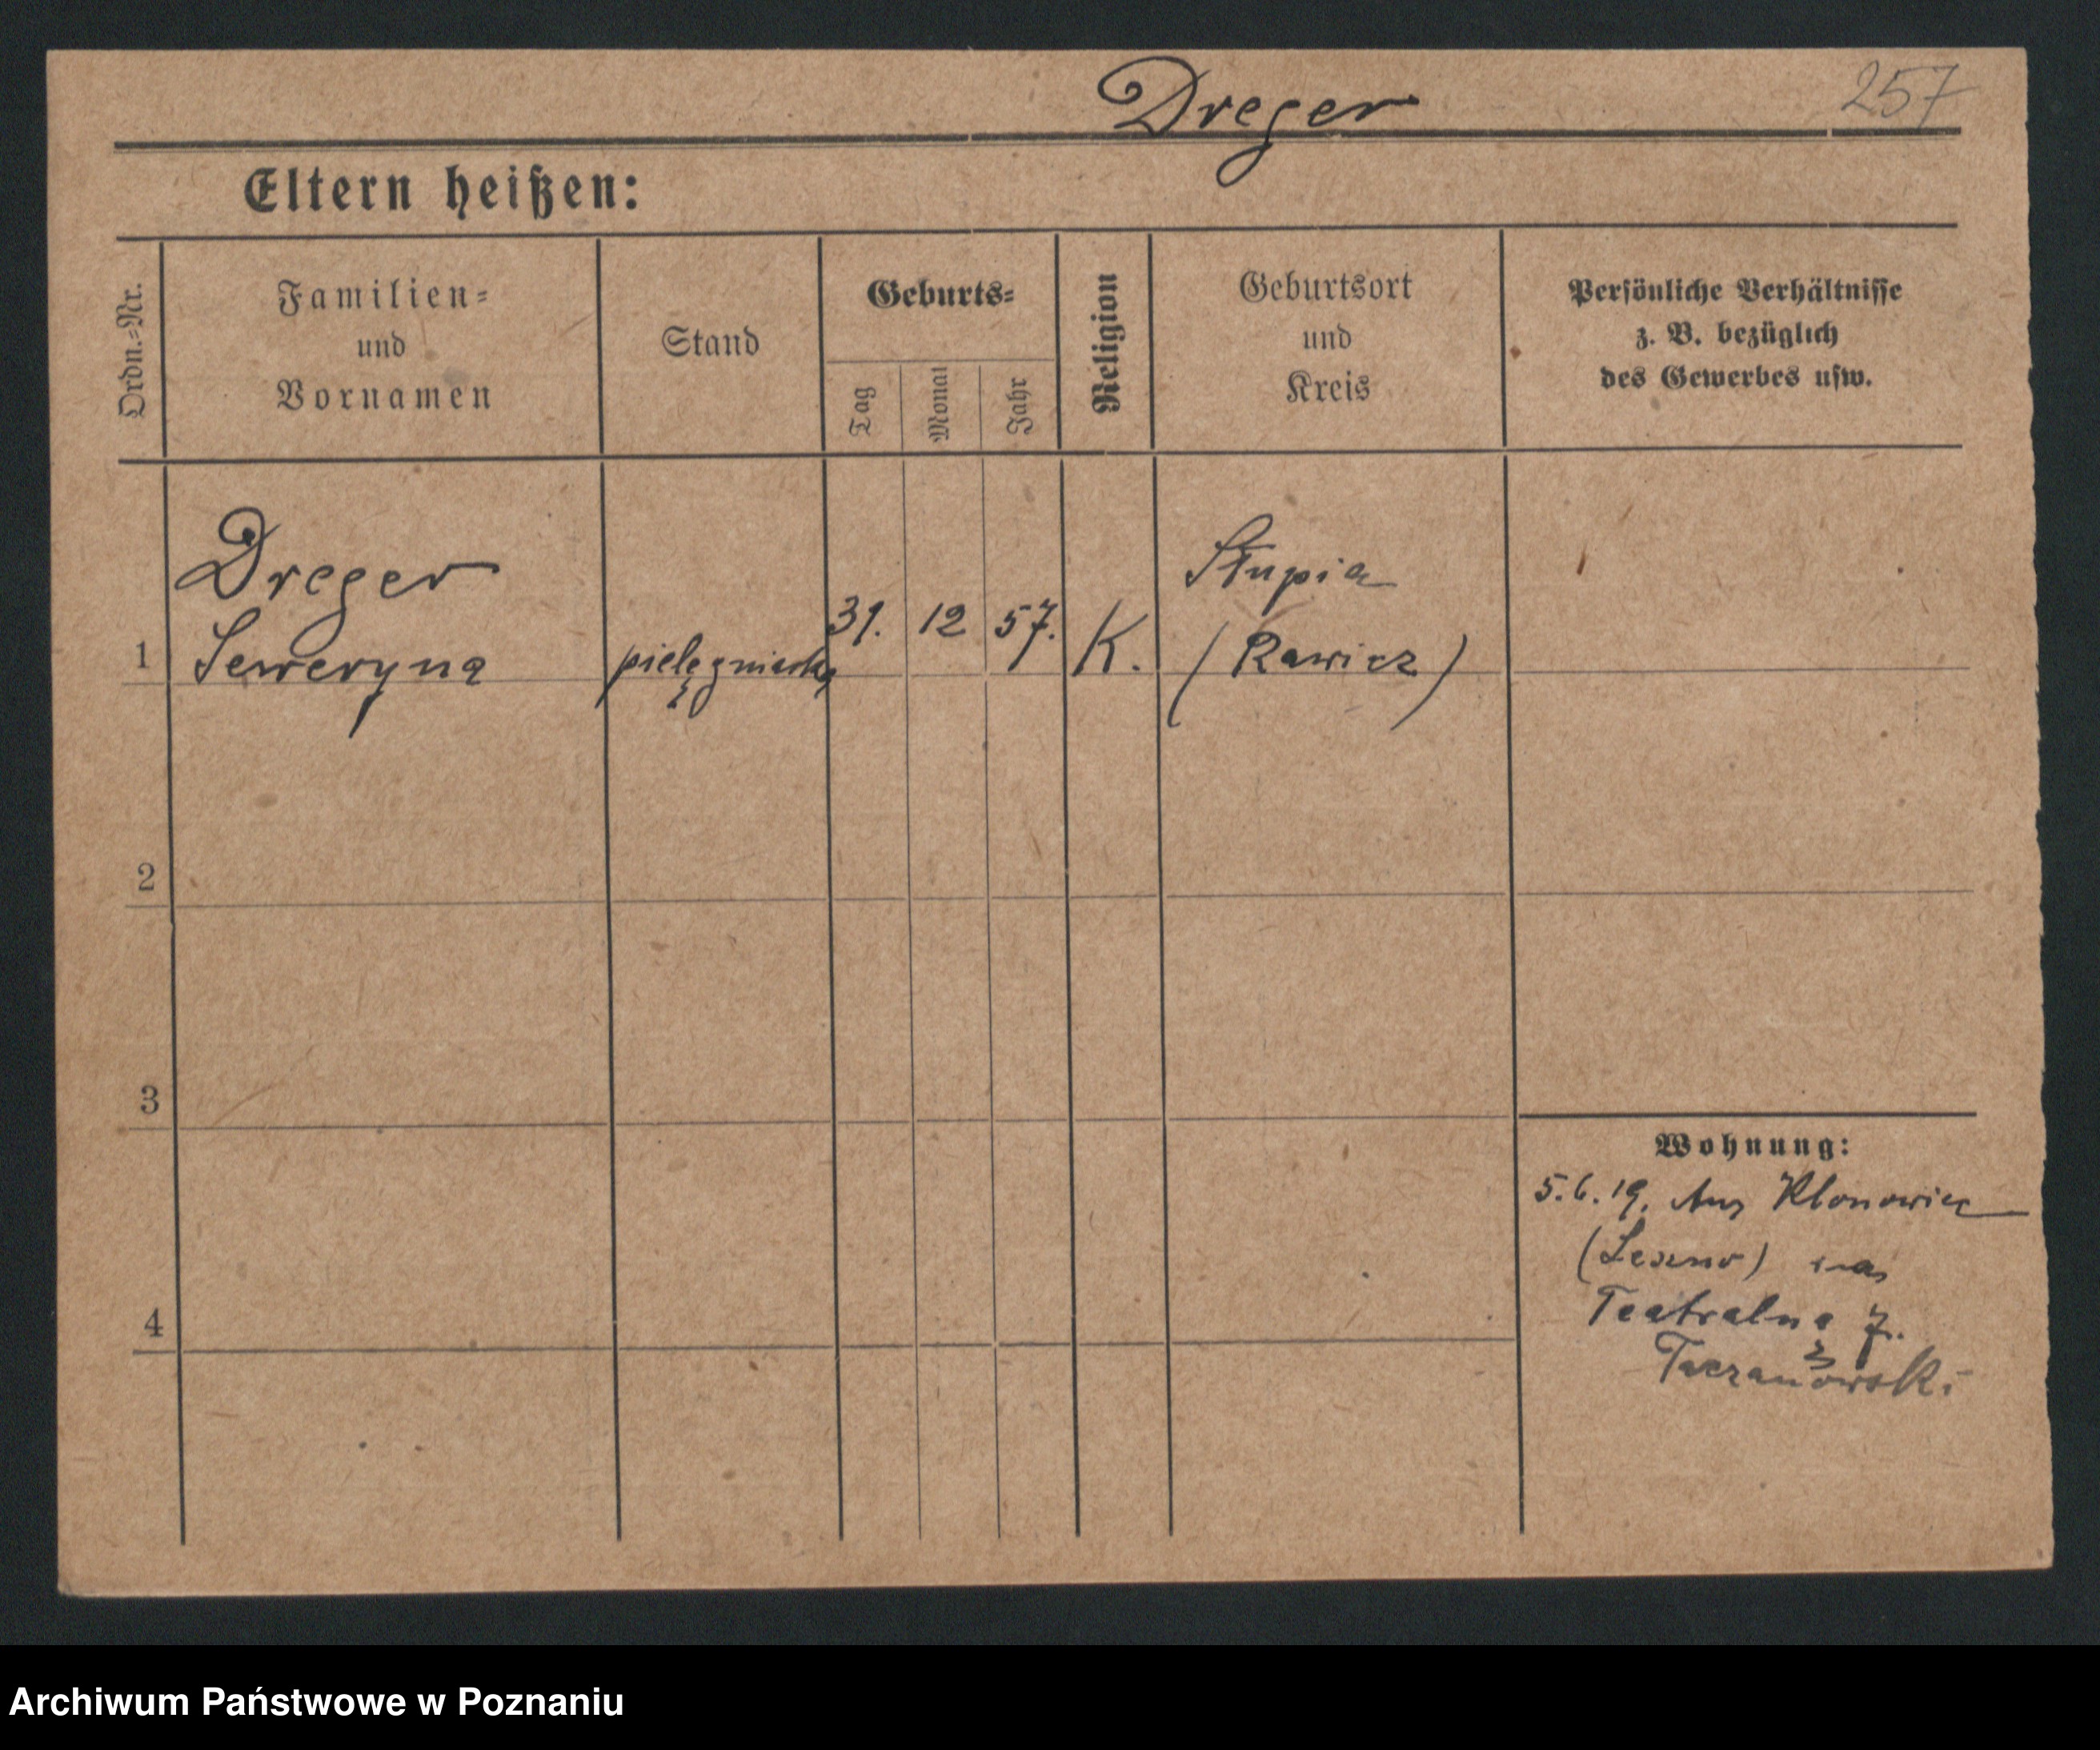 Dreger
257
Eltern heißen:
Ordn.=Nr.
Familien=
und
Vornamen
Stand
Geburts=
Tag
Monat
Jahr
Religion
Geburtsort
und
Kreis
Persönliche Verhältnisse
z. B. bezüglich
des Gewerbes usw.
1
Dreger
Seweryna
pielęgniarka
31.
12
57.
K.
Słupia
(Rawicz)
2
3
4
Wohnung:
5.6.19. Aus Klonowiec
(Leszno) na
Teatralna 7.
Archiwum Państwowe w Poznaniu